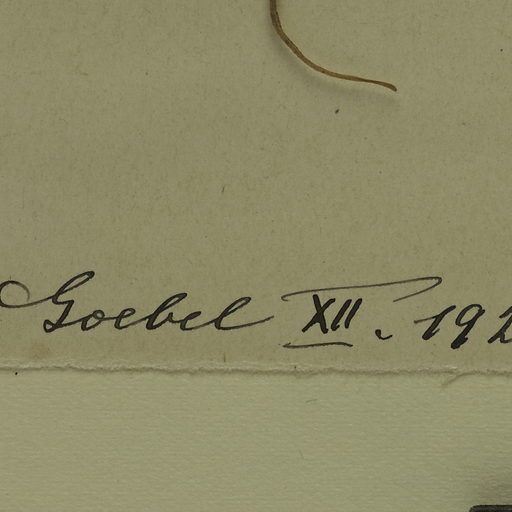 Goebel XII. 192